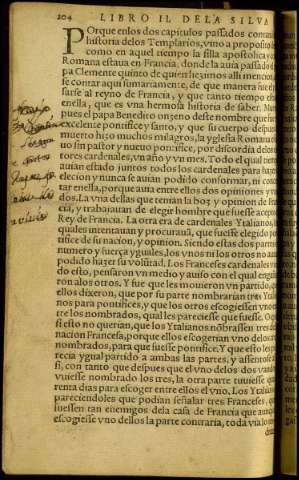 204 LIBRO II. DELA SILVA
POrque enlos dos capitulos passados contamos
historia delos Templarios, vino a proposito
como en aquel tiempo la silla apostolica y
Romana estaua en Francia, donde la auia passada el
pa Clemente quinto de quien hezimos alli mencion,
se contar aqui sumariamente, de que manera fue el
sarse al reyno de Francia, y que tanto tiempo
enella, que es vna hermosa historia de saber. Mu
pues el papa Benedito onzeno deste nombre que fue
excelente pontifice y santo, y que su cuerpo despues
muerto hizo muchos milagros, la yglesia Romana
uo sin pastor y nueuo pontifice, por discordia delos
tores cardenales, vn año y vn mes. Todo el qual tiempo
auian estado juntos todos los cardenales para hazer
eleccion y nunca se auian podido conformar, ni con
tar enella, porque auia entre ellos dos opiniones y
dos. La vna dellas que tenian la boz y opinion de Fran
cia, y trabajauan de elegir hombre que fuesse acepto
Rey de Francia. La otra era de cardenales Ytalianos,
quales intentauan y procurauã, que fuesse elegido
tifice de su nacion, y opinion. Siendo estas dos partes
numero y fuerça yguales, los vnos ni los otros no auian
podido hazer su volũtad. Los Franceses cardenales
do esto, pensaron vn medio y auiso con el qual
ron alos otros. Y fue que les mouieron vn partido, que
ellos dixeron, que por su parte nombrarian tres Ytalia
nos para pontifices, y que los otros escogiessen vno
tre los nombrados, qual les pareciesse que fuesse. O
si esto no querian, que los Ytalianos nõbrassen tres de
nacion Francesa, porque ellos escogerian vno delos
nombrados, para que fuesse pontifice. Y que esto les pa
recia ygual partido a ambas las partes, y assentose
si, con tanto que despues que el vno delos dos vandos
vuiesse nombrado los tres, la otra parte tuuiesse qua
renta dias para escoger entre ellos el vno. Los Ytalianos
pareciendoles que podian señalar tres Franceses,
fuessen tan enemigos dela casa de Francia que aunque
escogiesse vno dellos la parte contraria, toda via